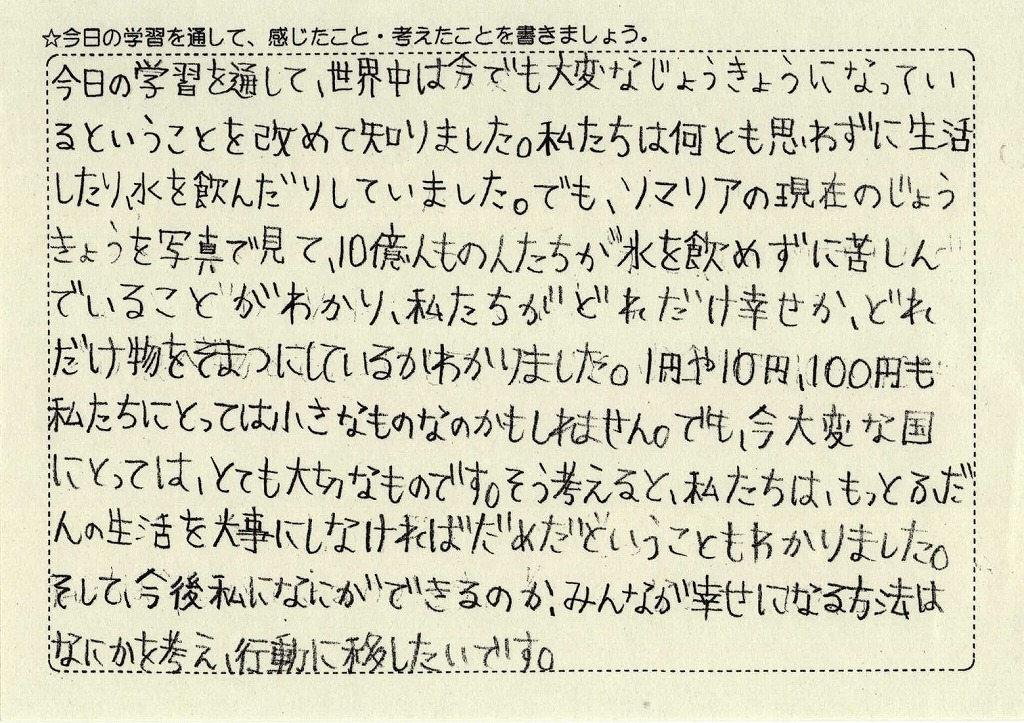 ☆今日の学習を通して、感じたこと・考えたことを書きましょう。
今日の学習を通して、世界中は今でも大変なじょうきょうになってい
るということを改めて知りました。私たちは何とも思わずに生活
したり、水を飲んだりしていました。でも、ソマリアの現在のじょう
きょうを写真で見て、10億人もの人たちが水を飲めずに苦しん
でいることがわかり、私たちがどれだけ幸せか、どれ
だけ物をそまつにしているかがわかりました。1円や10円、100円も
私たちにとっては小さなものなのかもしれません。でも、今大変な国
にとっては、とても大切なものです。そう考えると、私たちは、もっとふだ
んの生活を大事にしなければだめだということもわかりました。
そして、今後私になにができるのか、みんなが幸せになる方法は
なにかを考え、行動に移したいです。